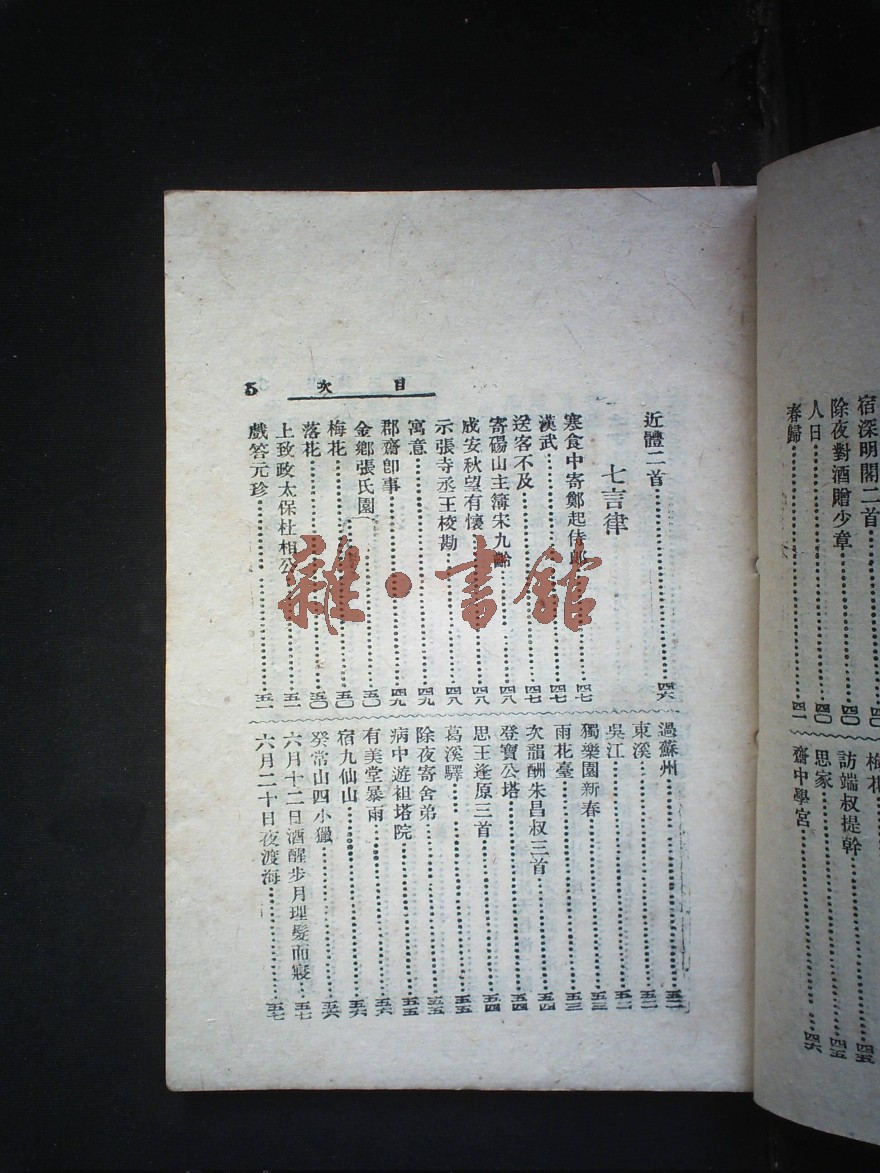 宿深明閣二首……四〇
除夜對酒贈少章……四〇
人日……四〇
春歸……四一
梅花
訪端叔提幹……四五
思家……四五
齋中學宮……四六
目次 5
近體二首……四六
七言律
寒食中寄鄭起侍郎……四七
漢武……四七
送客不及……四七
寄碭山主簿宋九齡……四八
成安秋望有懷……四八
示張寺丞王校勘……四八
寓意……四九
郡齋卽事……四九
金鄉張氏園……五〇
梅花……五〇
落花……五〇
上致政太保杜相公……五一
戲答元珍……五一
過蘇州……五二
東溪……五二
吳江……五二
獨樂園新春……五三
雨花臺……五三
次韻酬朱昌叔三首……五四
登寶公塔……五四
思王逢原三首……五四
葛溪驛……五五
除夜寄舍弟……五五
病中遊祖塔院……五五
有美堂暴雨……五六
宿九仙山……五六
癸常山四小獵……五六
六月十二日酒醒步月理髮而寢……五七
六月二十日夜渡海……五七
雜·書館